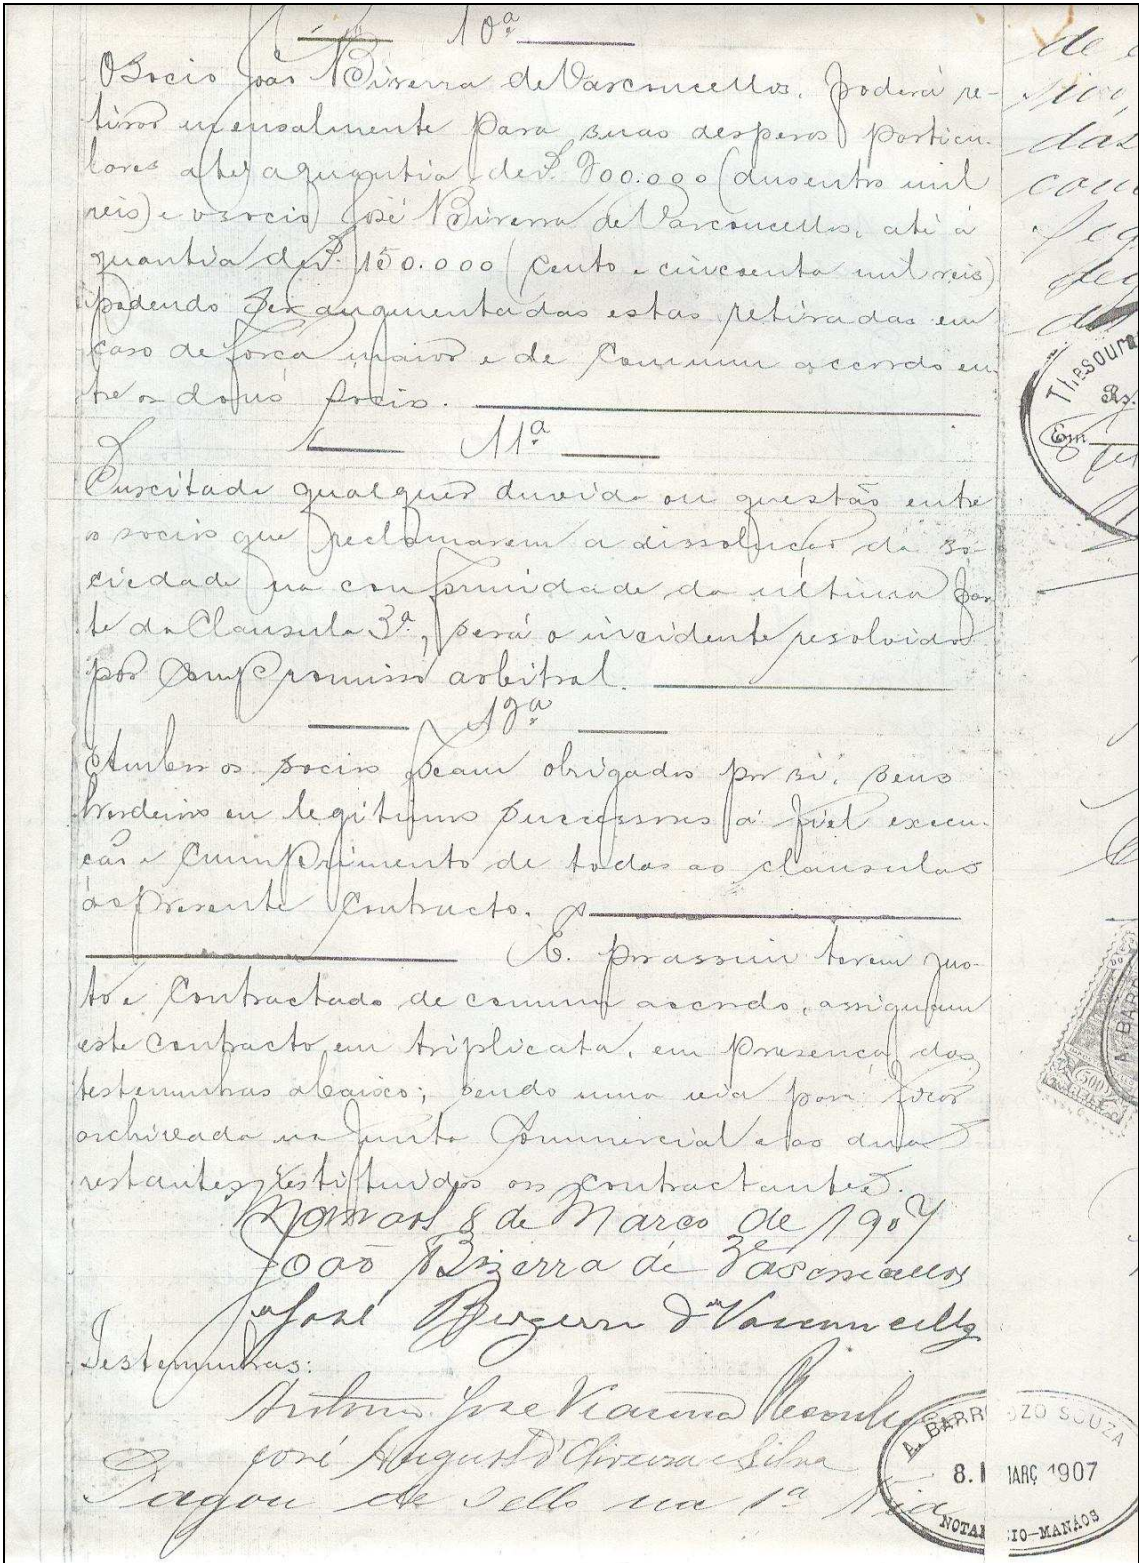 10ª
O Socio João Biserra de Vasconcellos, poderá re-
tirar mensalmente para suas despesas particu-
lares até a quantia de 200.000 (dusentos mil
reis) e o socio José Biserra de Vasconcellos, até á
quantia de 150.000 (cento e cincoenta mil reis)
podendo ser augmentadas estas retiradas em
caso de força maior e de commum accordo en-
tre os dous socios.
11ª
Suscitada qualquer duvida ou questão entre
os socios que reclamarem a dissolução da so-
ciedade na conformidade da ultima par
te da Clausula 3ª, será o incidente resolvido
por compromisso arbitral.
12ª
Ambos os socios ficam obrigados por si, seus
herdeiros ou legitimos successores á fiel execu-
ção e cumprimento de todas as clausulas
do presente contracto.
E. por assim terem jus-
to e contractado de comum accordo, assignam
este contracto em triplicata, em presença das
testemunhas abaixo; sendo uma via para ficar
archivada na Junta Commercial e as duas
restantes restituidas aos contractantes.
Manaos 8 de Março de 1907
João Bizerra de Vasconcellos
José Bezerra de Vasconcellos
Testemunhas:
Antonio José
José Augusto d'Oliveira e Silva
Pagou de sello na 1ª via
A. BARROZO SOUZA
8. MARÇ 1907
NOTARIO-MANÁOS
de
das
Thesoura
Rs.
Em
A. BARR
500